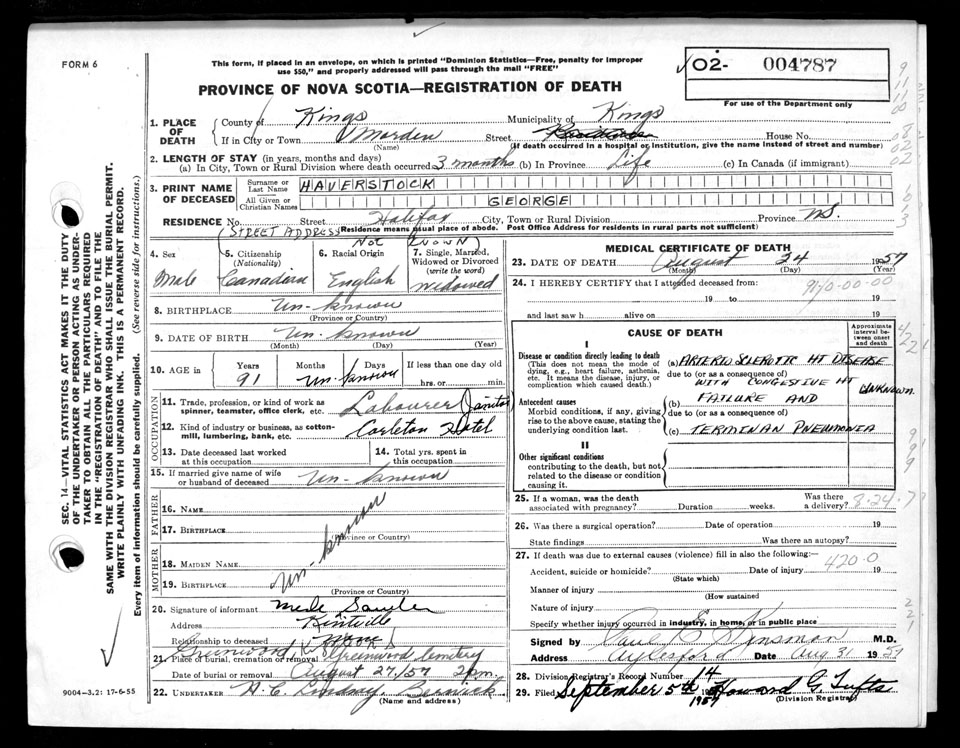 FORM 6
This form, if placed in an envelope, on which is printed "Dominion Statistics—Free, penalty for improper
use $50," and properly addressed will pass through the mail "FREE"
PROVINCE OF NOVA SCOTIA—REGISTRATION OF DEATH
02- 004787
For use of the Department only
1. PLACE OF DEATH County of Kings Municipality of Kings
If in City or Town Morden Street House No.
(Name) (If death occurred in a hospital or institution, give the name instead of street and number)
2. LENGTH OF STAY (in years, months and days)
(a) In City, Town or Rural Division where death occurred 3 months (b) In Province Life (c) In Canada (if immigrant)
3. PRINT NAME OF DECEASED Surname or Last Name HAVERSTOCK
All Given or Christian Names GEORGE
RESIDENCE No. Street Halifax City, Town or Rural Division Province N.S.
(STREET ADDRESS Not KNOWN)
Residence means usual place of abode. Post Office Address for residents in rural parts not sufficient)
4. Sex Male
5. Citizenship (Nationality) Canadian
6. Racial Origin English
7. Single, Married, Widowed or Divorced (write the word) Widowed
8. BIRTHPLACE Un-known
(Province or Country)
9. DATE OF BIRTH Un-known
(Month) (Day) (Year)
10. AGE in Years 91 Months Days Un-known If less than one day old hrs. or min.
OCCUPATION
11. Trade, profession, or kind of work as spinner, teamster, office clerk, etc. Labourer Janitor
12. Kind of industry or business, as cotton-mill, lumbering, bank, etc. Carleton Hotel
13. Date deceased last worked at this occupation
14. Total yrs. spent in this occupation
15. If married give name of wife or husband of deceased Un-known
FATHER
16. NAME
17. BIRTHPLACE
(Province or Country)
Un-known
MOTHER
18. MAIDEN NAME
19. BIRTHPLACE
(Province or Country)
20. Signature of informant
Address Kentville
Relationship to deceased
21. Place of burial, cremation or removal Greenwood Cemetery
Greenwood
Date of burial or removal August 27/57 2 pm.
22. UNDERTAKER H. C. Lindsay Berwick
(Name and address)
9004-3.2: 17-6-55
MEDICAL CERTIFICATE OF DEATH
23. DATE OF DEATH August 24 1957
(Month) (Day) (Year)
24. I HEREBY CERTIFY that I attended deceased from:
19 to 19
and last saw h alive on 19
CAUSE OF DEATH
Approximate interval between onset and death
I
Disease or condition directly leading to death
(This does not mean the mode of dying, e.g., heart failure, asthenia, etc. It means the disease, injury, or complication which caused death.)
(a) ARTERIOSCLEROTIC HT DISEASE
due to (or as a consequence of)
WITH CONGESTIVE HT UNKNOWN
Antecedent causes
Morbid conditions, if any, giving rise to the above cause, stating the underlying condition last.
(b) FAILURE AND
due to (or as a consequence of)
(c) TERMINAN PNEUMONIA
II
Other significant conditions
contributing to the death, but not related to the disease or condition causing it.
25. If a woman, was the death associated with pregnancy? Duration weeks. Was there a delivery?
8-24-7
26. Was there a surgical operation? Date of operation 19
State findings Was there an autopsy?
27. If death was due to external causes (violence) fill in also the following:—
420.0
Accident, suicide or homicide? Date of injury 19
(State which)
Manner of injury
(How sustained
Nature of injury
Specify whether injury occurred in industry, in home, or in public place
Signed by Paul E Kinsman M.D.
Address Aylesford Date Aug 31 1957
28. Division Registrar's Record Number 14
29. Filed September 5th 1957 Howard G. Tufts
1957 (Division Registrar)
SEC. 14—VITAL STATISTICS ACT MAKES IT THE DUTY
OF THE UNDERTAKER OR PERSON ACTING AS UNDER-
TAKER TO OBTAIN ALL THE PARTICULARS REQUIRED
IN THE "REGISTRATION OF DEATH" AND TO FILE THE
SAME WITH THE DIVISION REGISTRAR WHO SHALL ISSUE THE BURIAL PERMIT.
WRITE PLAINLY WITH UNFADING INK. THIS IS A PERMANENT RECORD.
Every item of information should be carefully supplied. (See reverse side for instructions.)